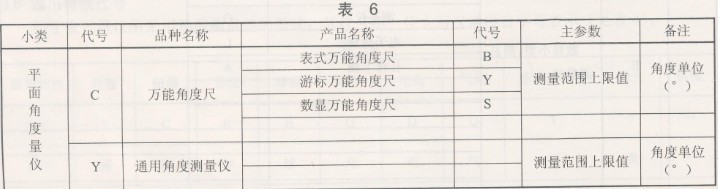 表 6
小类 代号 品种名称 产品名称 代号 主参数 备注
平面角度量仪
C 万能角度尺
表式万能角度尺 B
游标万能角度尺 Y
数显万能角度尺 S
测量范围上限值
角度单位
（°）
Y 通用角度测量仪
测量范围上限值
角度单位
（°）